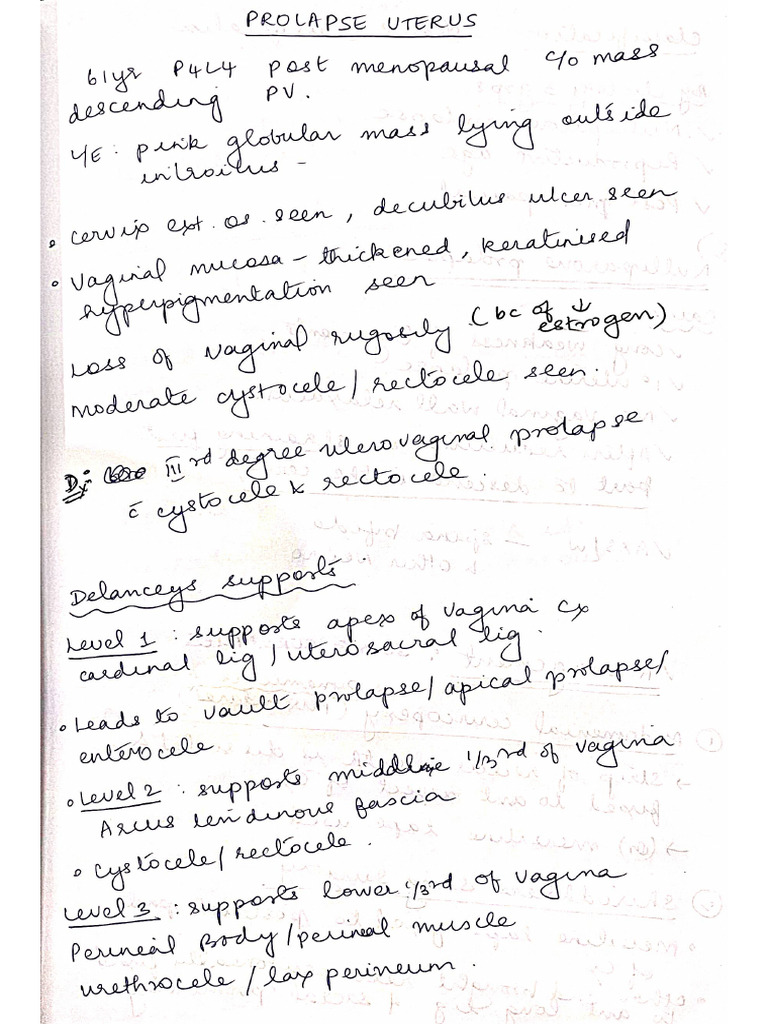 PROLAPSE UTERUS
61yr P4L4 post menopausal c/o mass
descending PV.
L/E: pink globular mass lying outside
introitus -
• cervix ext. os. seen, decubitus ulcer seen
• vaginal mucosa - thickened, keratinised
hyperpigmentation seen
Loss of vaginal rugosity (bc of ↓
estrogen)
moderate cystocele / rectocele seen.
Dx: III rd degree uterovaginal prolapse
c̄ cystocele & rectocele.
Delanceys supports
Level 1 : supports apex of vagina cx
cardinal lig / uterosacral lig.
• Leads to vault prolapse / apical prolapse /
enterocele
• Level 2 : supports middle 1/3rd of vagina
Arcus tendinous fascia
• cystocele / rectocele.
Level 3 : supports lower 1/3rd of vagina
Perineal Body / perineal muscle
urethrocele / lax perineum.